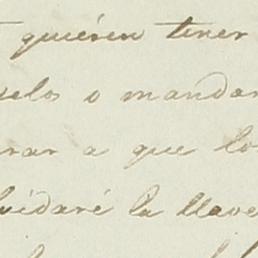 quiéren tener
selos o mandar
rar a que lo
vidaré la llave